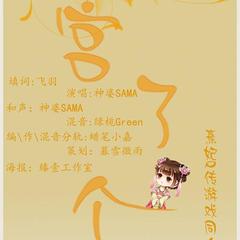 宫了个
填词:飞羽
演唱:神婆SAMA
和声:神婆SAMA
混音:绿桃Green
编\作\混音分轨:蜡笔小嘉
策划:暮雪微雨
海报:臻壹工作室
宫传游戏同